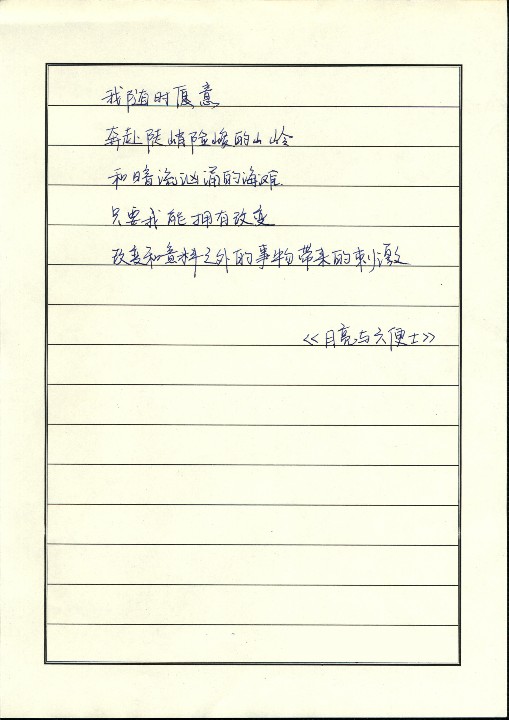 我随时愿意
奔赴陡峭险峻的山岭
和暗流汹涌的海滩
只要我能拥有改变
改变和意料之外的事物带来的刺激
《月亮与六便士》